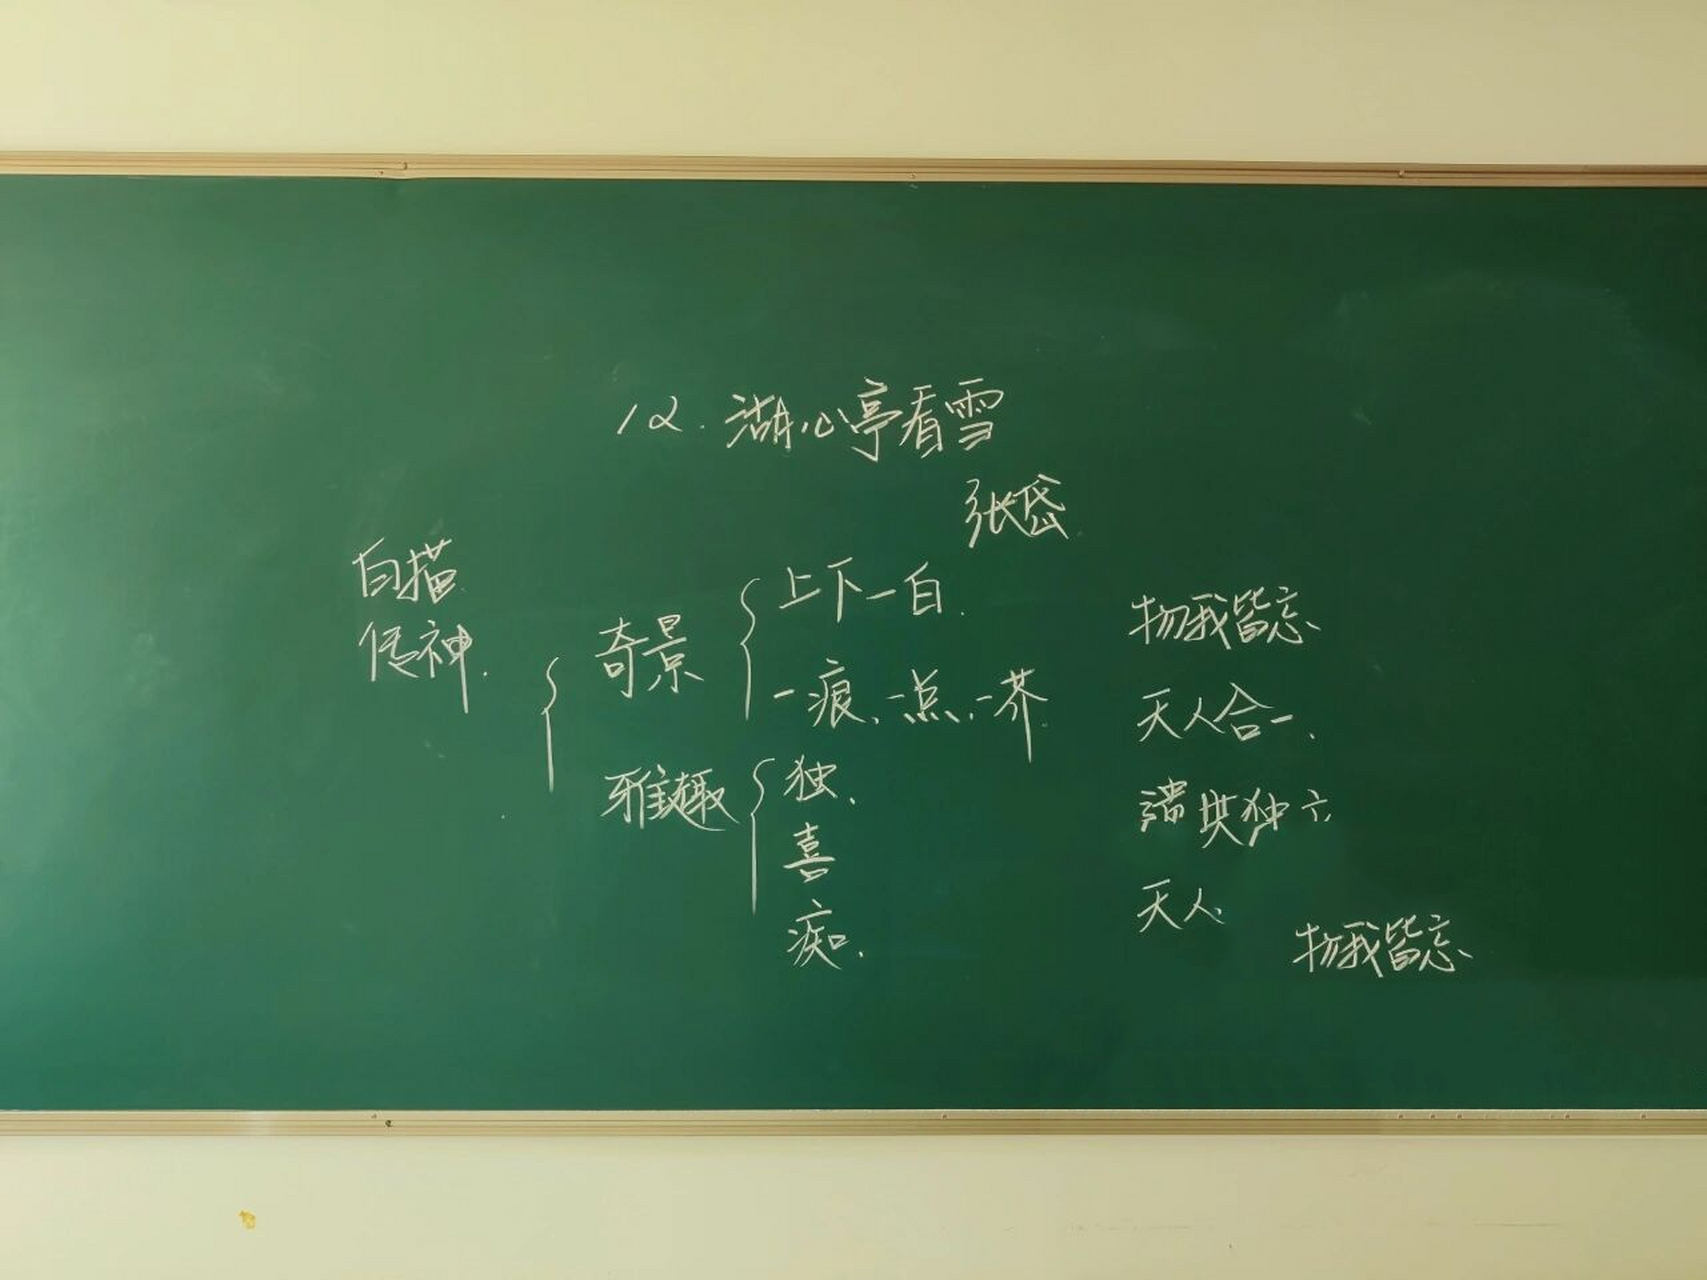 12. 湖心亭看雪
张岱
白描
传神.
奇景
上下一白.
一痕、一点、一芥
雅趣
独、
喜
痴.
物我皆忘
天人合一、
独立
天人
物我皆忘